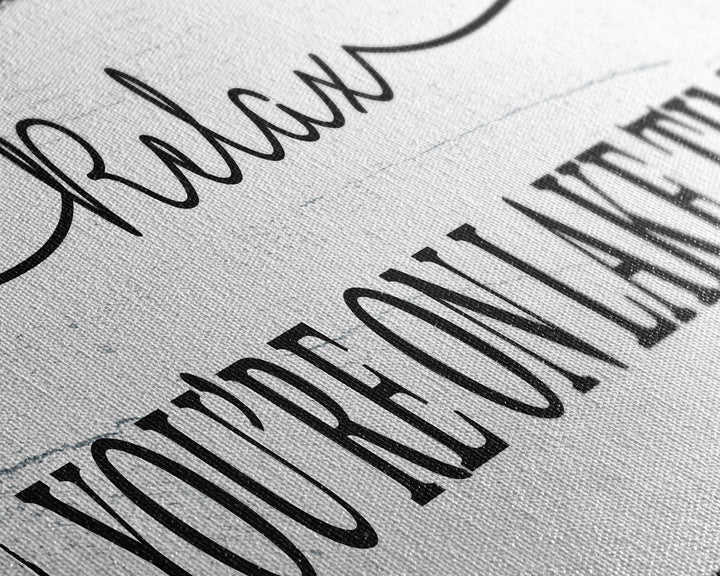 Relax
YOU'RE ON LAKE